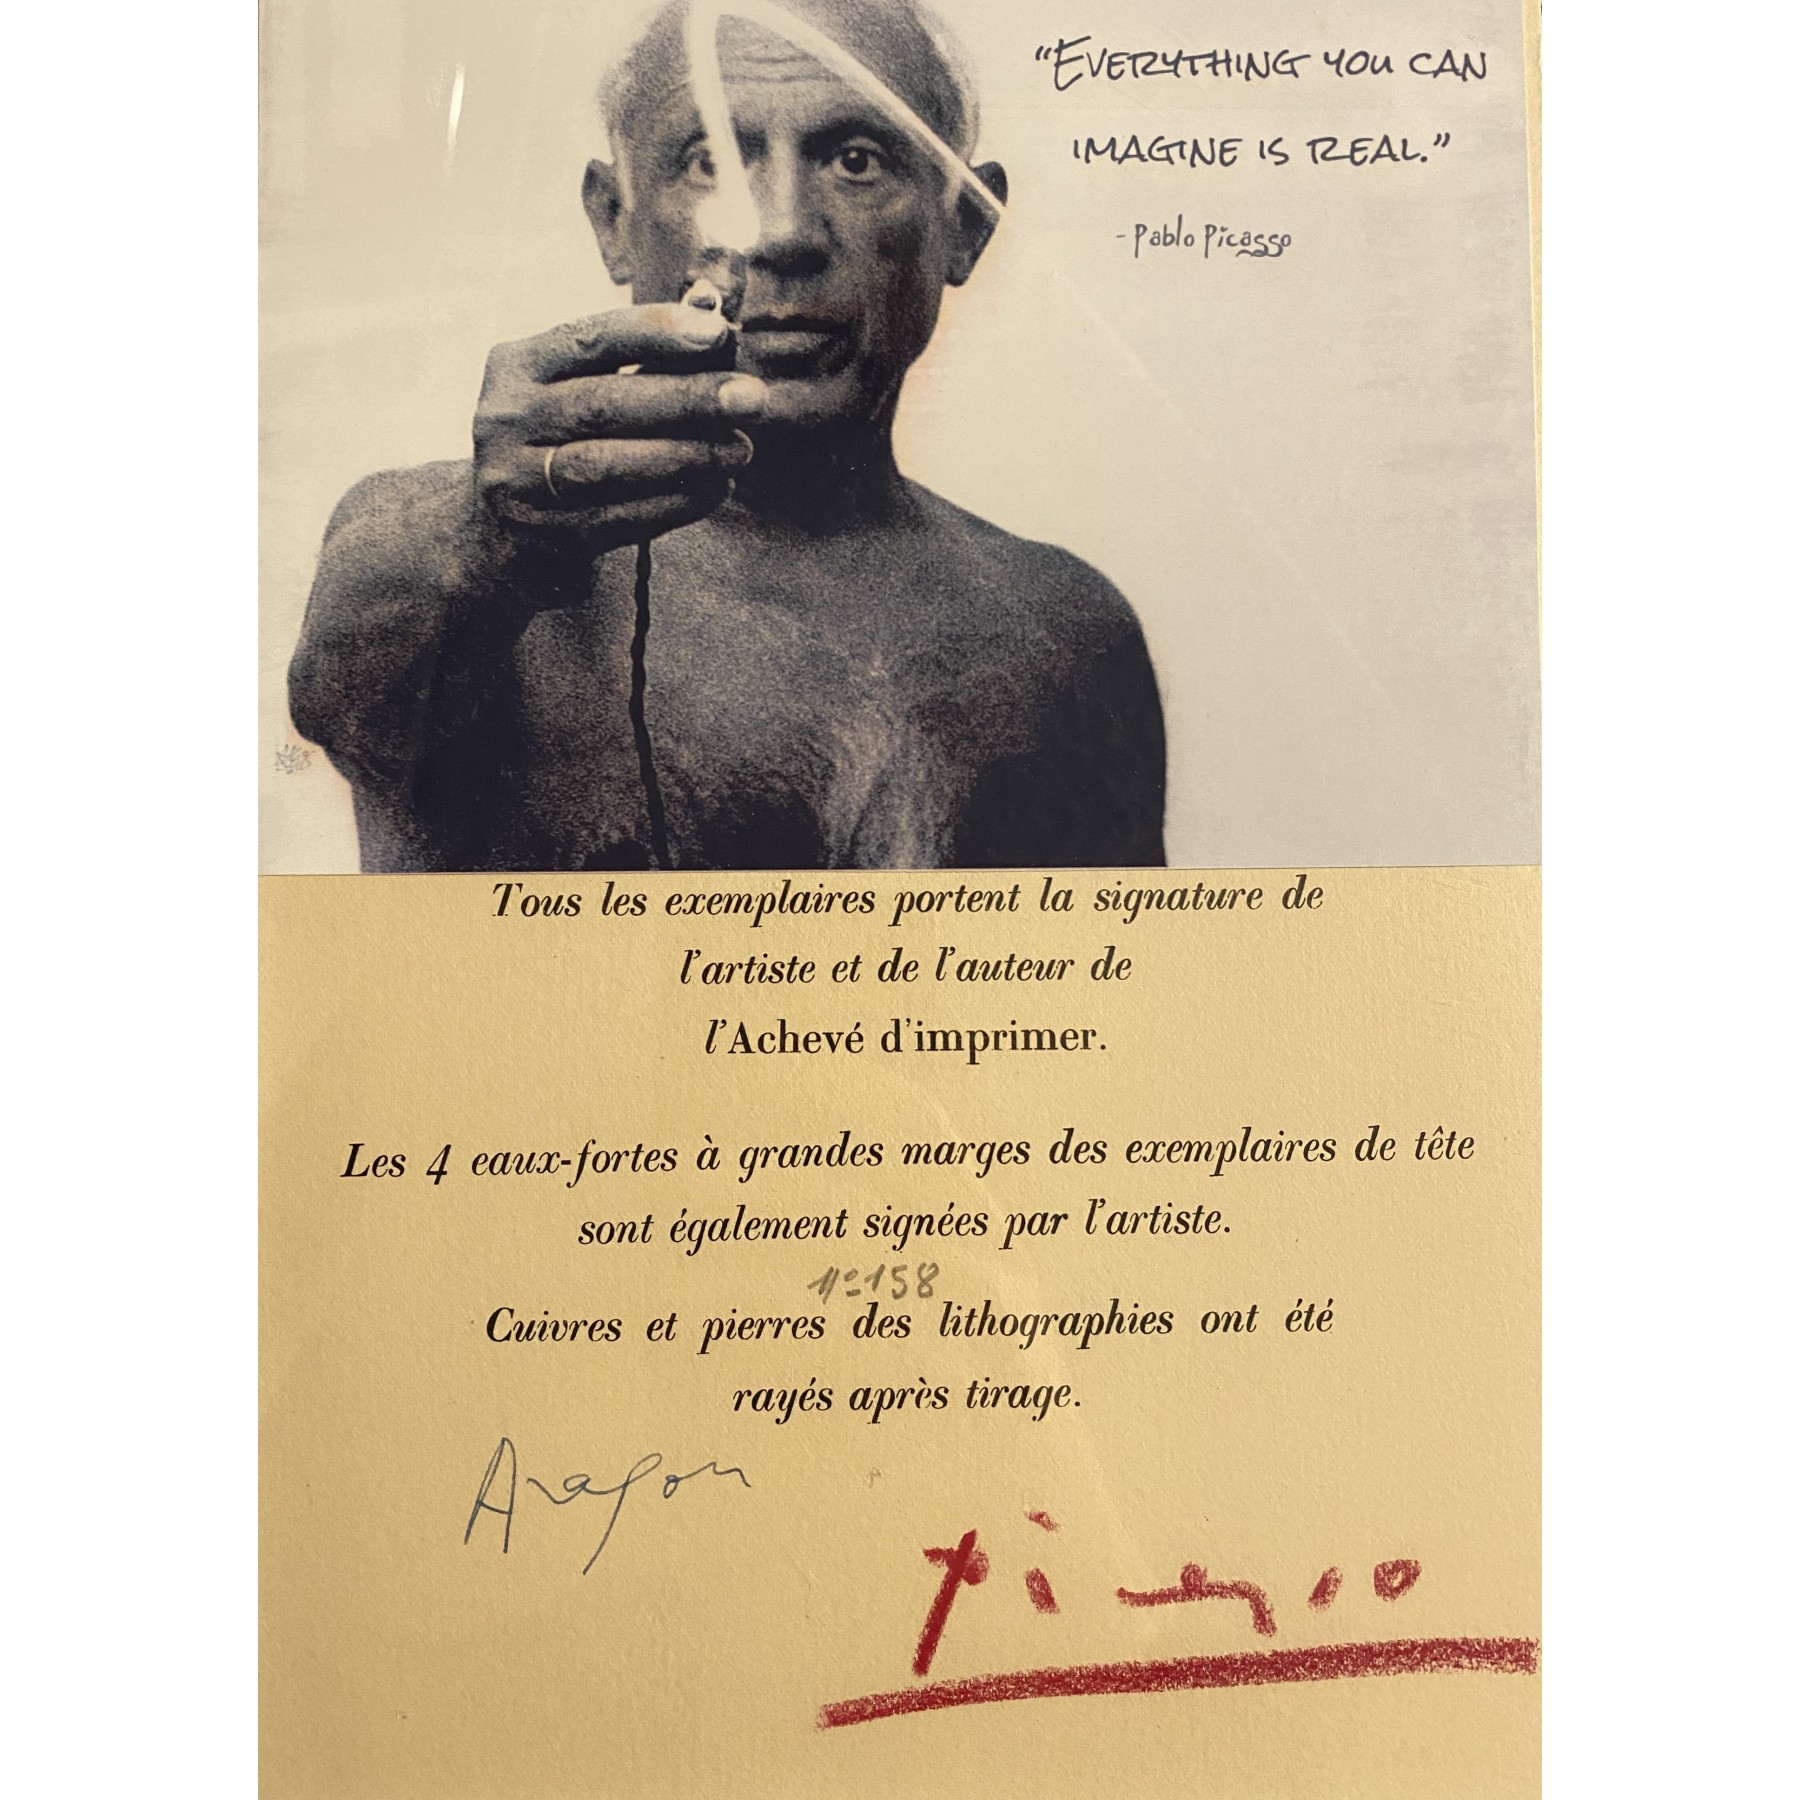 “EVERYTHING YOU CAN
IMAGINE IS REAL.”
- Pablo Picasso
Tous les exemplaires portent la signature de
l’artiste et de l’auteur de
l’Achevé d’imprimer.
Les 4 eaux-fortes à grandes marges des exemplaires de tête
sont également signées par l’artiste.
Nº 158
Cuivres et pierres des lithographies ont été
rayés après tirage.
Aragon
Picasso